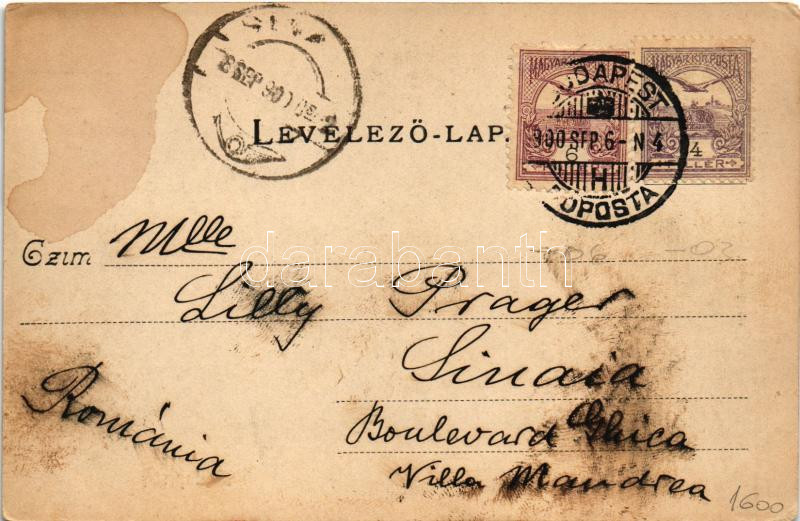 8 SEP 90
MAGYAR KIR. POSTA
MAGYAR KIR. POSTA
6
4
BUDAPEST
900 SEP. 6 - N 4
H
FŐPOSTA
LEVELEZŐ-LAP.
darabanth
Czim Mlle
Lilly Prager
Sinaia
România
Boulevard Ghica
Villa Mandrea
1600